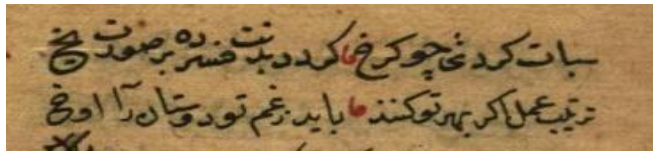 سبات کردی چو کرخ ما کردد بدنت فسرده بر صورت یخ
ترتیب عمل اکر بهر تو کنند ما باید ز غم تو دوستان را اوخ